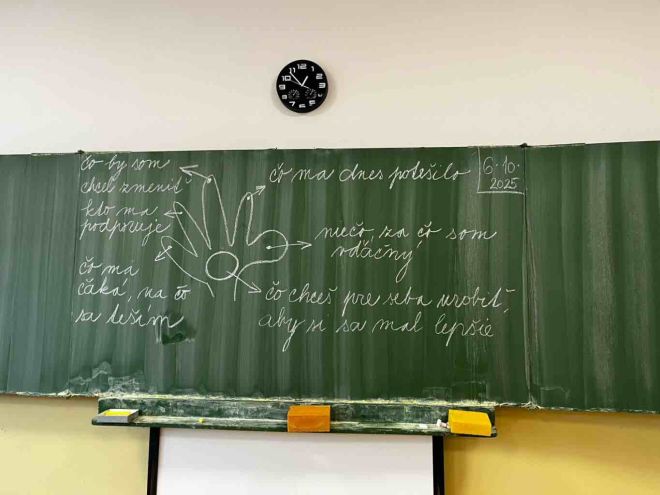 čo by som
chcel zmeniť
kto ma
podporuje
čo ma
čaká, na čo
sa teším
čo ma dnes potešilo
6.10.
2025
niečo, za čo som
vďačný
čo chceš pre seba urobiť,
aby si sa mal lepšie